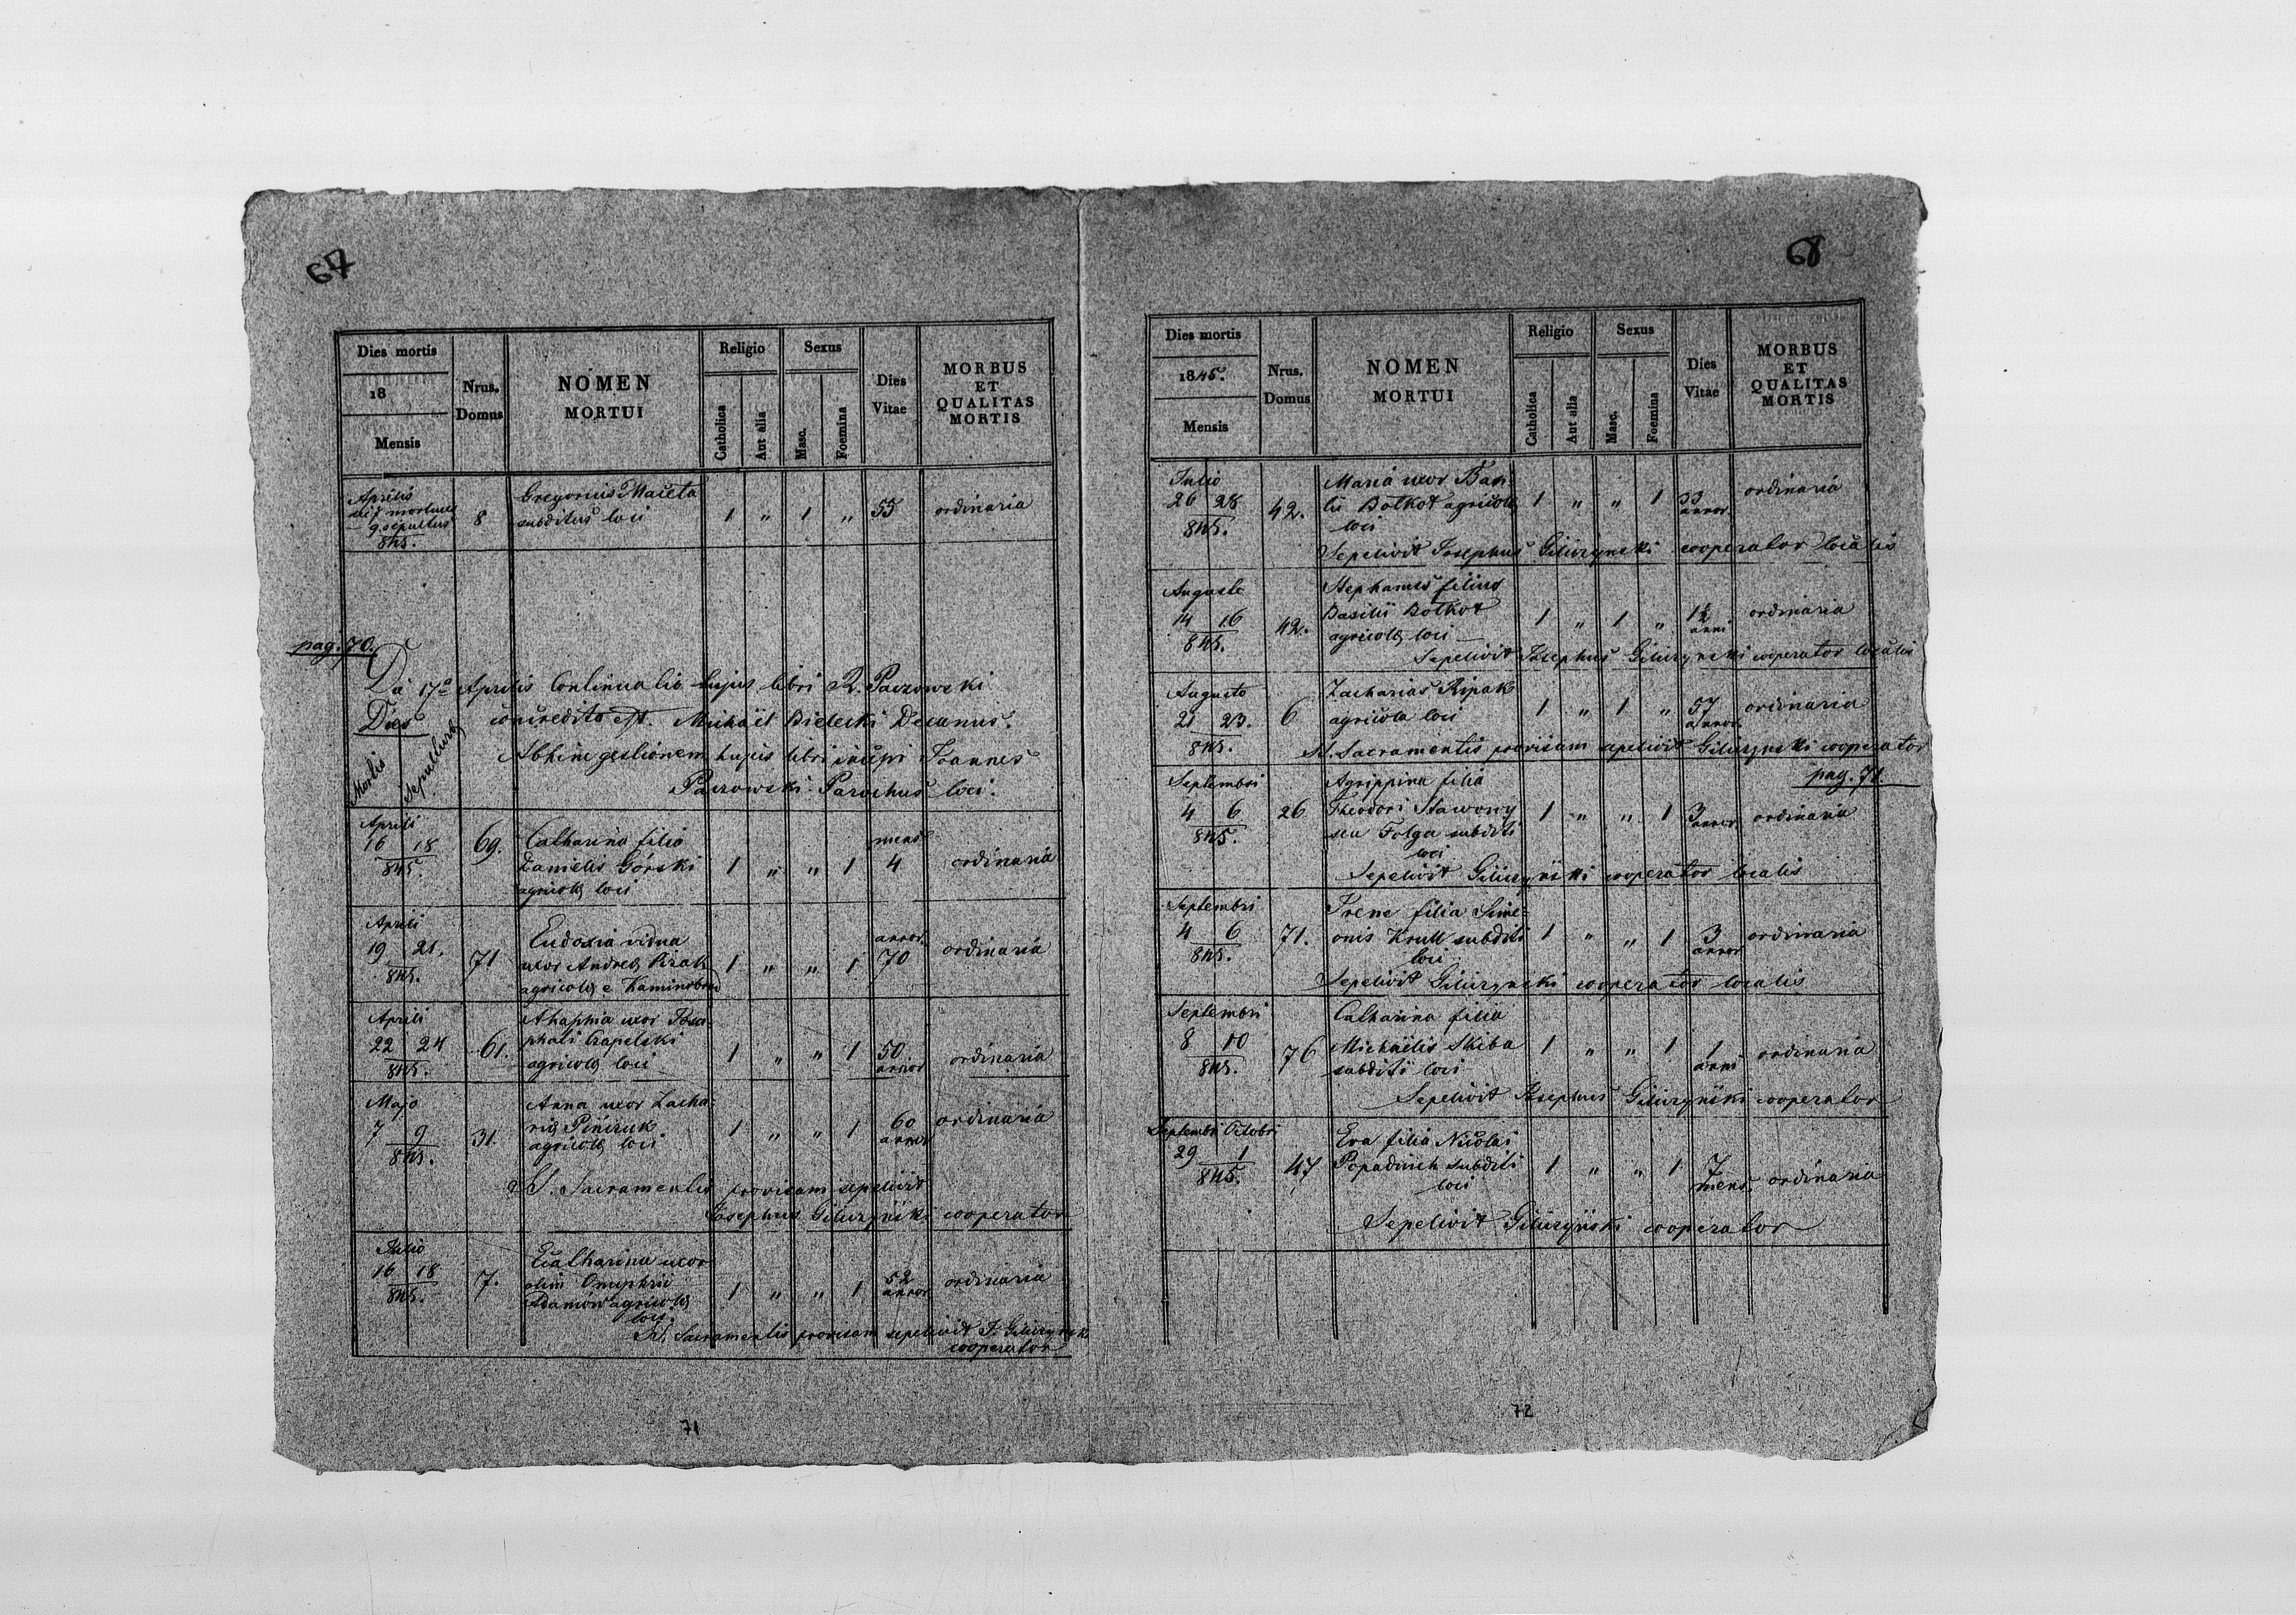 67
Dies mortis
18
Mensis
Nrus. Domus
NOMEN MORTUI
Religio
Catholica
Aut alia
Sexus
Masc.
Foemina
Dies Vitae
MORBUS ET QUALITAS MORTIS
Aprilis
die 7 mortuus
9 sepultus
845.
8
Gregorius Maceta
subditus loci
1 " 1 " 55 ordinaria
pag. 70.
Die 17a Aprilis Continuatio hujus libri R. Paczowski
concredita est. Michaël Bielecki Decanus.
Abhinc gestionem hujus libri incepi Joannes
Paczowski Parochus loci.
Dies
Mortis
Sepulturae
Aprili
16 18
845.
69.
Catharina filia
Danielis Górski
agricolae loci
1 " " 1
mens
4
ordinaria
Aprili
19 21.
845.
71
Eudoxia vidua
uxor Andreae
agricolae e
1 " " 1
annor.
70
ordinaria
Aprili
22 24
845.
61.
Ahaphia uxor Josa-
phati Czapelski
agricolae loci
1 " " 1
50
annor
ordinaria
Majo
7 9
845.
31.
Anna uxor Zacha-
riae Pińczuk
agricolae loci
1 " " 1
60
annor
ordinaria
SS. Sacramentis provisam sepelivit
Josephus Giliczyński cooperator
Julio
16 18
845.
7.
Catharina uxor
olim Onuphrii
Adamów agricolae
loci.
1 " " 1
52
annor
ordinaria
SS. Sacramentis provisam sepelivit J. Giliczyński
cooperator
71
68
Dies mortis
1845.
Mensis
Nrus. Domus
NOMEN MORTUI
Religio
Catholica
Aut alia
Sexus
Masc.
Foemina
Dies Vitae
MORBUS ET QUALITAS MORTIS
Julio
26 28
845.
42.
Maria uxor Basi-
lii Botkot agricolae
loci
1 " " 1
33
annor
ordinaria
Sepelivit Josephus Giliczynski cooperator localis
Auguste
14 16
845.
42.
Stephanus filius
Basilii Botkot
agricolae loci
1 " 1 "
1½
anni
ordinaria
Sepelivit Josephus Giliczynski cooperator localis
Augusto
21 23.
845.
6
Zacharias Ripak
agricola loci
1 " 1 "
57
annor.
ordinaria
SS. Sacramentis provisum sepelivit Giliczynski cooperator
pag. 71.
Septembri
4 6
845.
26
Agrippina filia
Theodori Stawowy
seu Folga subditi
loci
1 " " 1
3
annor
ordinaria
Sepelivit Giliczyński cooperator localis
Septembri
4 6
845.
71.
Irene filia Sime-
onis Krull subditi
loci
1 " " 1
3
annor
ordinaria
Sepelivit Giliczynski cooperator localis
Septembri
8 10
845.
76
Catharina filia
Michaëlis Skiba
subditi loci
1 " " 1
1
anni
ordinaria
Sepelivit Josephus Giliczyński cooperator
Septembri Octobri
29 1
845.
47
Eva filia Nicolai
Popadinch subditi
loci
1 " " 1
7
mens.
ordinaria
Sepelivit Giliczyński cooperator
72